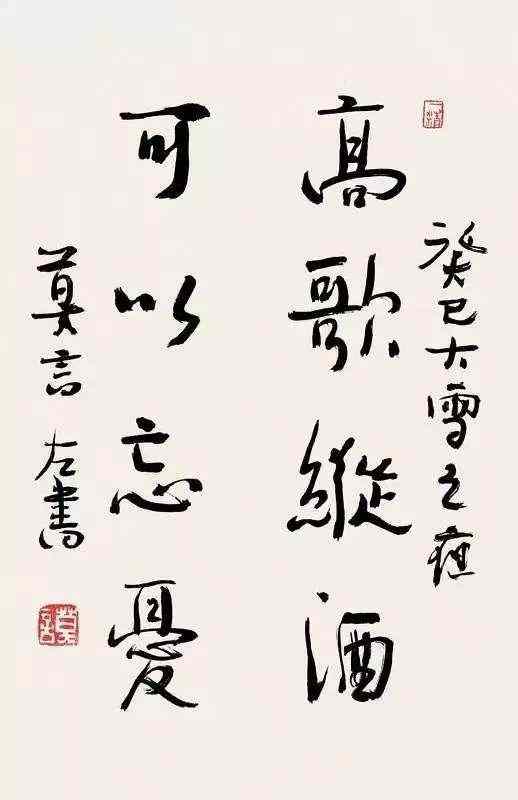 癸巳大雪之
高歌縱酒
可以忘憂
莫言左書
莫言